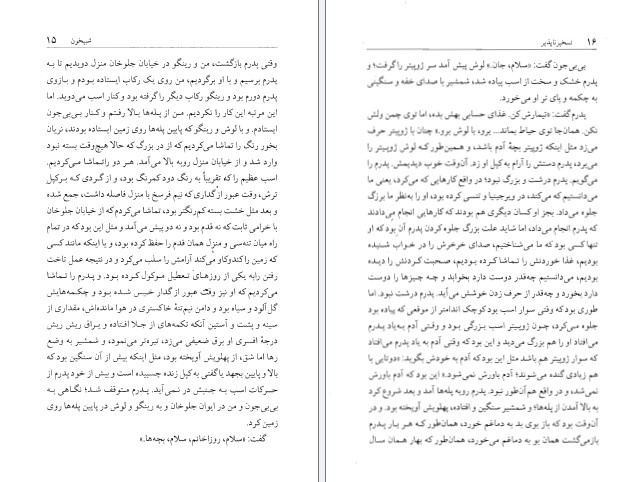 شبیخون ۱۵
وقتی پدرم بازگشت، من و رینگو در خیابان جلوخان منزل دویدیم تا به
پدرم برسیم و با او برگردیم، من روی یک رکاب ایستاده بودم و بازوی
پدرم دورم بود و رینگو رکاب دیگر را گرفته بود و کنار اسب می‌دوید. اما
این مرتبه این کار را نکردیم. من از پله‌ها بالا رفتم و کنار بی‌بی‌جون
ایستادم. و با لوش و رینگو که پایین پله‌ها روی زمین ایستاده بودند، نریان
بخور رنگ را تماشا می‌کردیم که از در بزرگ که حالا هیچ‌وقت بسته نبود
وارد شد و از خیابان منزل روبه بالا می‌آمد. هر دو راتماشا می‌کردیم.
اسب عظیم را که تقریباً به رنگ دود کمرنگ بود، و از گردی که برکپل
ترش، وقت عبور ازگداری که نیم فرسخ با منزل فاصله داشت، جمع شده
و بعد مثل خشت بسته کم‌رنگتر بود، تماشا می‌کردم‌که از خیابان جلوخان
با خرامی ثابت‌که نه قدم بود و نه دو پیش می‌آمد و مثل این بودکه در تمام
راه میان تنسی و منزل همان قدم را حفظ کرده بود، و یا اینکه مانند کسی
که زمین راکندوکاو می‌کند آرامش را سلب می‌کرد و در نتیجه عمل تاخت
رفتن رابه یکی از روزهای تعطیل موکول کرده بود. و پدرم را تماشا
می‌کردیم که او نیز وقت عبور از گدار خیس شده بود و چکمه‌هایش
گل‌آلود و سیاه بود و دامن نیم‌تنهٔ خاکستری در هوا مانده‌اش، مقداری از
سینه و پشت و آستین آنکه تکمه‌های از جلا افتاده و یراق ریش ریش
درجهٔ افسری او برق ضعیفی می‌زد، تیره‌تر می‌نمود، و شمشیر به وضع
رها اما شق، از پهلویش آویخته بود، مثل اینکه بیش از آن سنگین بود که
بالا و پایین بجهد یا گفتی به کپل زنده چسبیده است و بیش از خود پدرم از
حرکات اسب به جنبش در نمی‌آید. پدرم متوقف شد؛ نگاهی به
بی‌بی‌جون و من در ایوان جلوخان و به رینگو و لوش در پایین پله‌ها روی
زمین کرد.
گفت: «سلام، روزاخانم، سلام، بچه‌ها.»
۱۶ تسخیرناپذیر
بی‌بی‌جون گفت: «سلام، جان.» لوش پیش آمد سر ژوپیتر را گرفت؛ و
پدرم خشک و سخت از اسب پیاده شد، شمشیر با صدای خفه و سنگینی
به چکمه و پای تر او می‌خورد.
پدرم‌گفت: «تیمارش کن. غذای حسابی بهش بده، اما توی چمن ولش
نکن. همان‌جا توی حیاط بماند... برو.» لوش برو» چنان با ژوپیتر حرف
می‌زد مثل اینکه ژوپیتر بچهٔ آدم باشد، و همین‌طور که لوش ژوپیتر را
می‌برد، پدرم دستش را آرام به کپل او زد. آن‌وقت خوب دیدیمش. پدرم را
می‌گویم. پدرم درشت و بزرگ نبود؛ در واقع کارهایی که می‌کرد، یعنی ما
می‌دانستیم که می‌کند، در ویرجینیا و تنسی کرده بود، او را به‌نظر ما بزرگ
جلوه می‌داد. بجز او کسان دیگری هم بودند که کارهایی انجام می‌دادند
که پدرم انجام می‌داد، اما شاید علت بزرگ جلوه کردن پدرم آن بود که او
تنها کسی بود که ما می‌شناختیم، صدای خرخرش را در خواب شنیده
بودیم، غذا خوردنش را تماشا کرده بودیم، صحبت کردنش را دیده
بودیم، می‌دانستیم چه‌قدر دوست دارد بخوابد و چه چیزها را دوست
دارد بخورد و چه‌قدر از حرف زدن خوشش می‌آید. پدرم درشت نبود. اما
طوری بود که وقتی سوار اسب بود کوچک اندامتر از موقعی که پیاده بود
جلوه می‌کرد، چون ژوپیتر اسب بزرگی بود و وقتی آدم به‌یاد پدرم
می‌افتاد پدرم را درشت می‌دید و این بود که وقتی آدم به یاد پدرم می‌افتاد
که سوار ژوپیتر هم باشد مثل این بود که آدم به خودش بگوید: «دوتایی با
هم زیادی گنده می‌شوند؛ آدم باورش نمی‌شود.» این بود که آدم باورش
نمی‌شد، و در واقع هم آن‌طور نبود. پدرم روبه پله‌ها آمد و بعد شروع کرد
به بالا آمدن از پله‌ها؛ و شمشیر سنگین و افتاده، پهلویش آویخته بود. و در
آن‌وقت بود که باز بوی بد به دماغم خورد، همان‌طور که هر بار پدرم
بازمی‌گشت همان بو به دماغم می‌خورد، همان‌طور که بهار همان سال